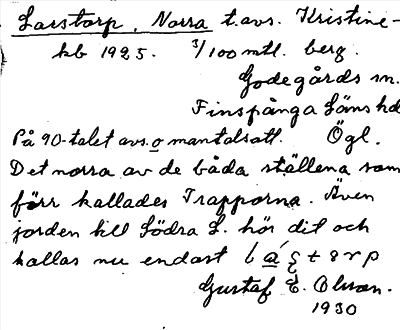 Larstorp, Norra t. avs. Kristine-
hb 1925. 3/100 mtl. berg.
Godegårds sn.
Finspånga Läns hd
På 90-talet avs. o mantalsatt. Ögl.
Det norra av de båda ställena som
förr kallades Trapporna. Även
jorden till Södra L. hör dit och
kallas nu endast
Gustaf E. Olsson.
1930